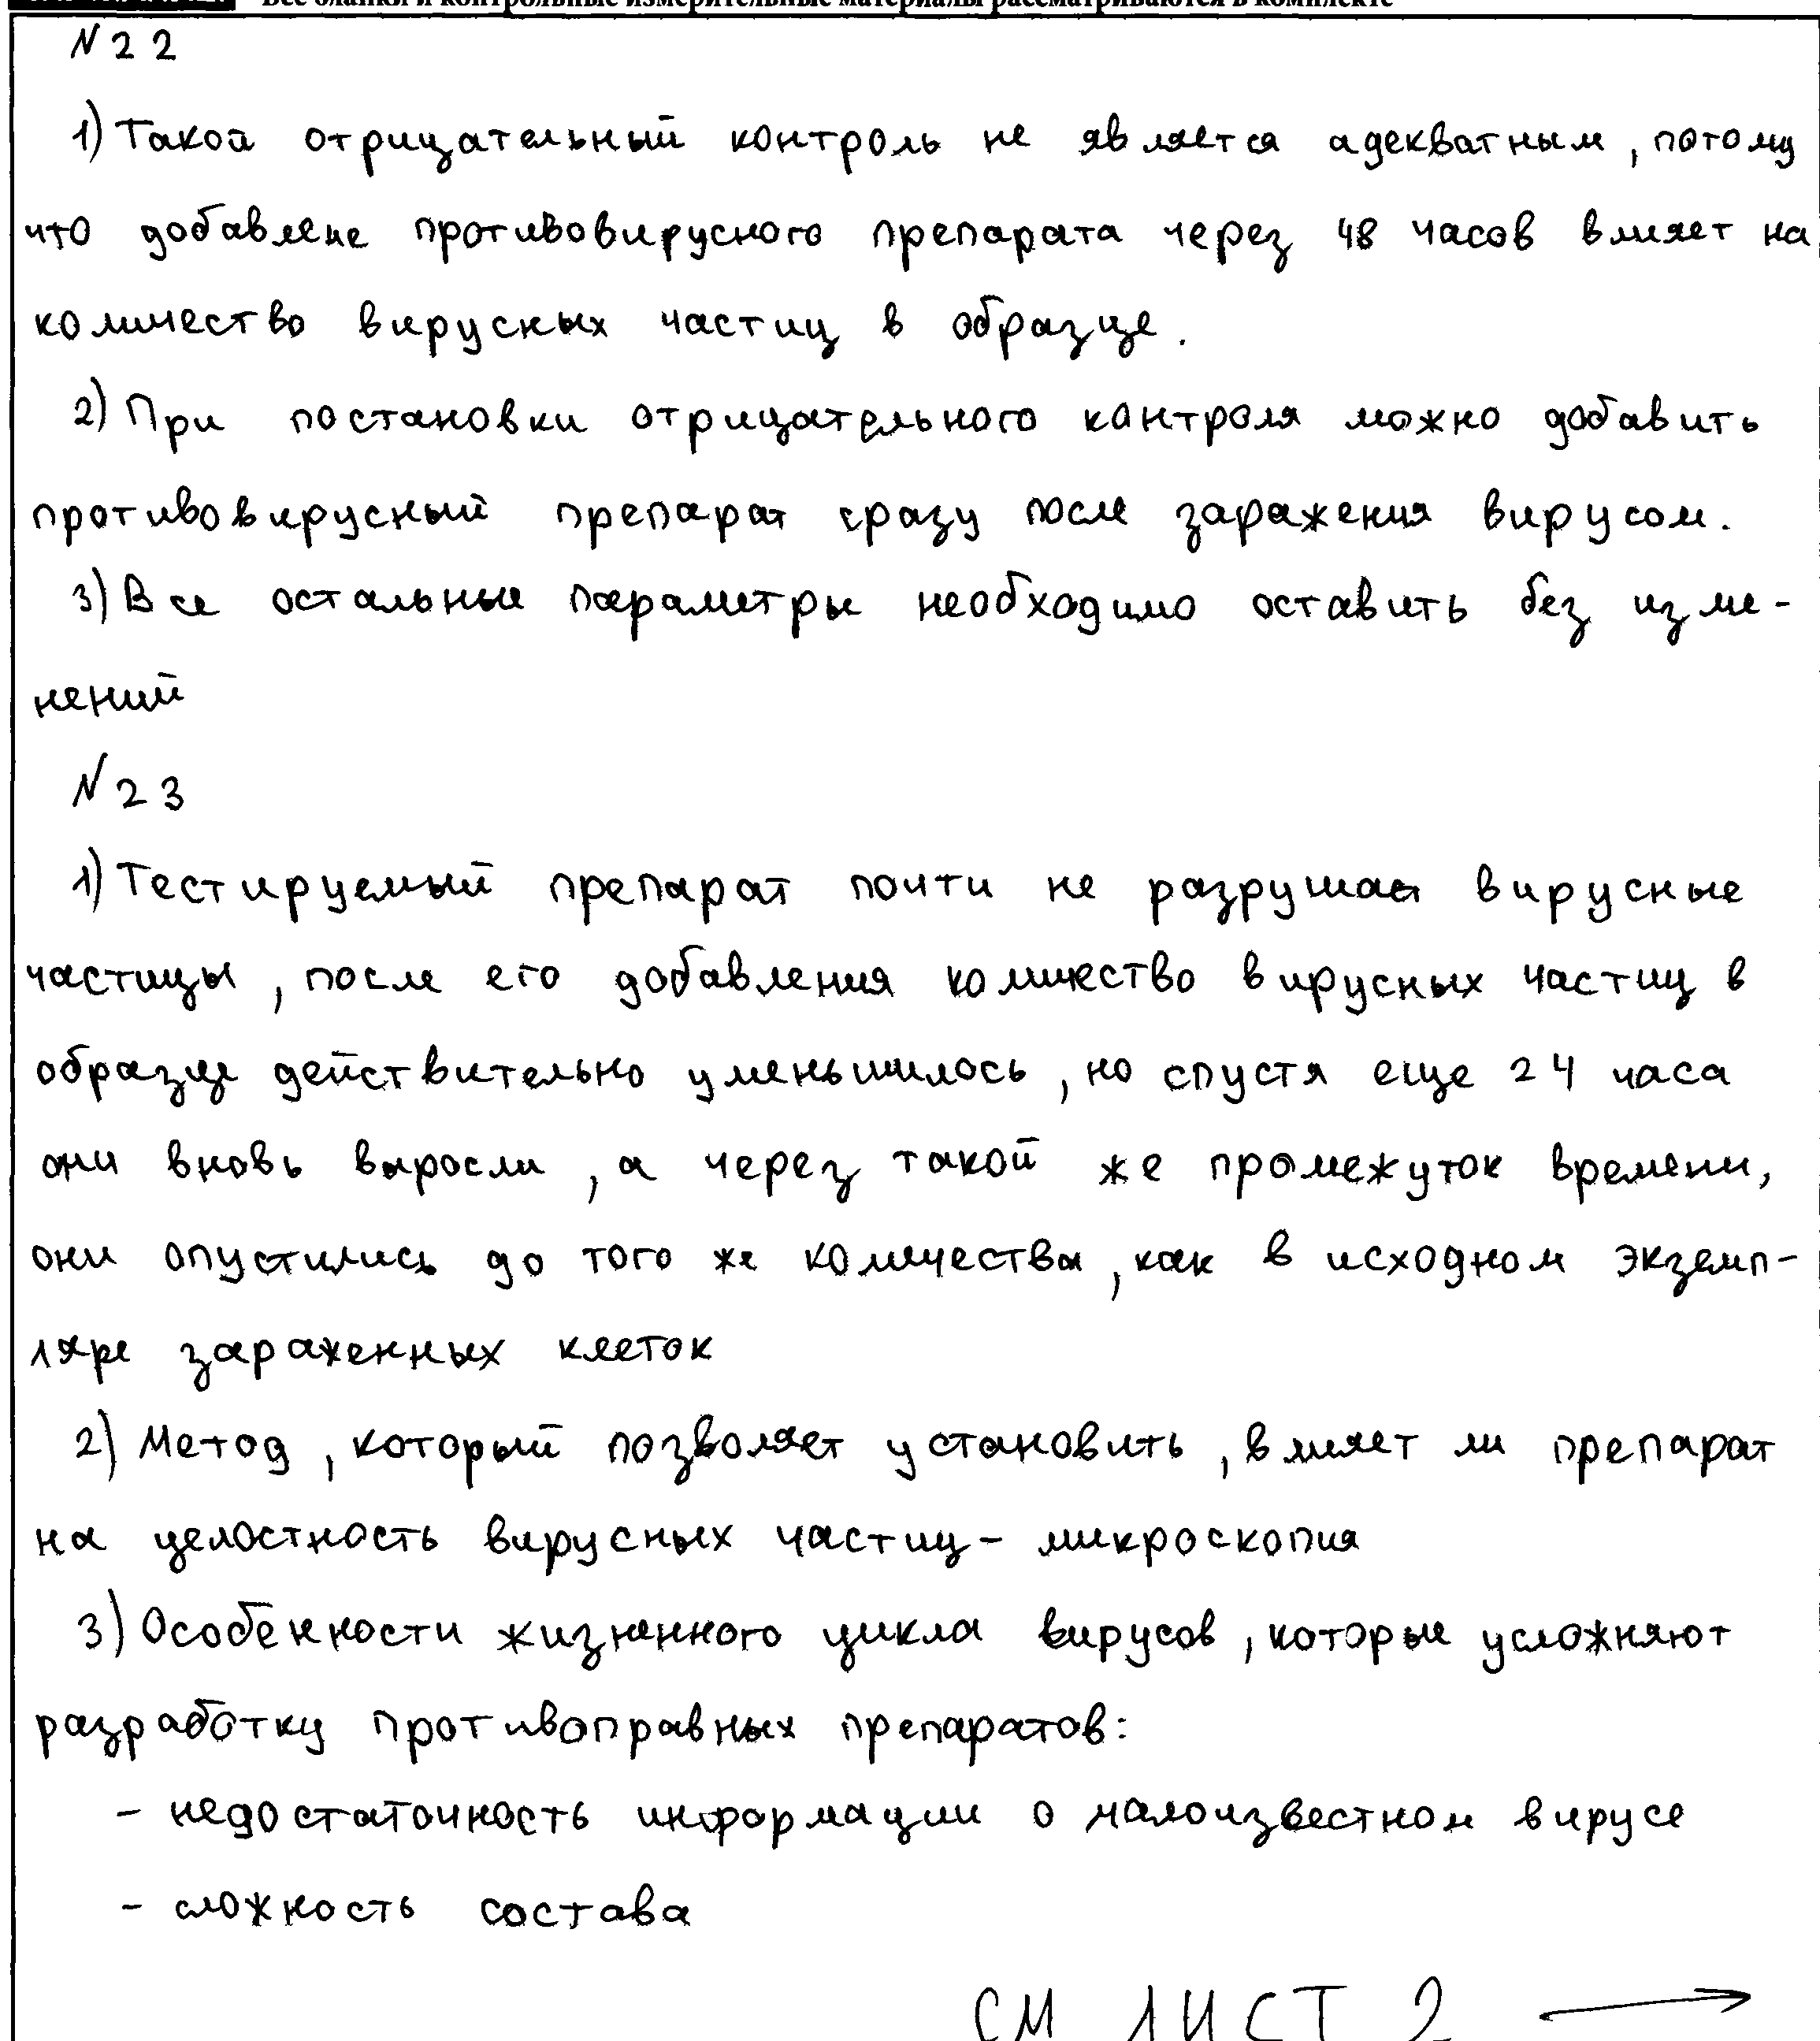 Все бланки и контрольные измерительные материалы рассматриваются в комплекте
№22
1) Такой отрицательный контроль не является адекватным, потому
что добавлене противовирусного препарата через 48 часов влияет на
количество вирусных частиц в образце.
2) При постановки отрицательного контроля можно добавить
противовирусный препарат сразу после заражения вирусом.
3) Все остальные параметры необходимо оставить без изме-
нений
№23
1) Тестируемый препарат почти не разрушает вирусные
частицы, после его добавления количество вирусных частиц в
образце действительно уменьшилось, но спустя еще 24 часа
они вновь выросли, а через такой же промежуток времени,
они опустились до того же количества, как в исходном экземп-
ляре зараженных клеток
2) Метод, который позволяет установить, влияет ли препарат
на целостность вирусных частиц - микроскопия
3) Особенности жизненного цикла вирусов, которые усложняют
разработку противоправных препаратов:
- недостаточность информации о малоизвестном вирусе
- сложность состава
СМ ЛИСТ 2 →